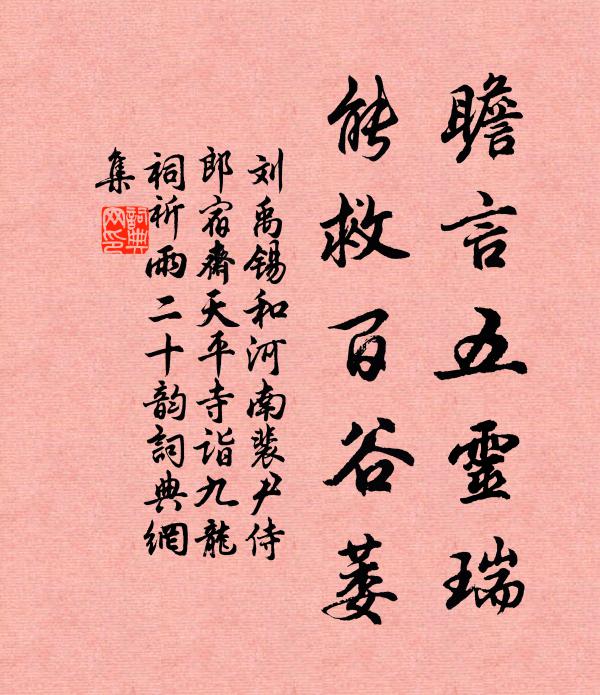 瞻言五靈瑞
能救百谷萎
刘禹锡和河南裴尹侍
郎宿齋天平寺诣九龍
祠祈雨二十韵詞典網
集
詞典網印